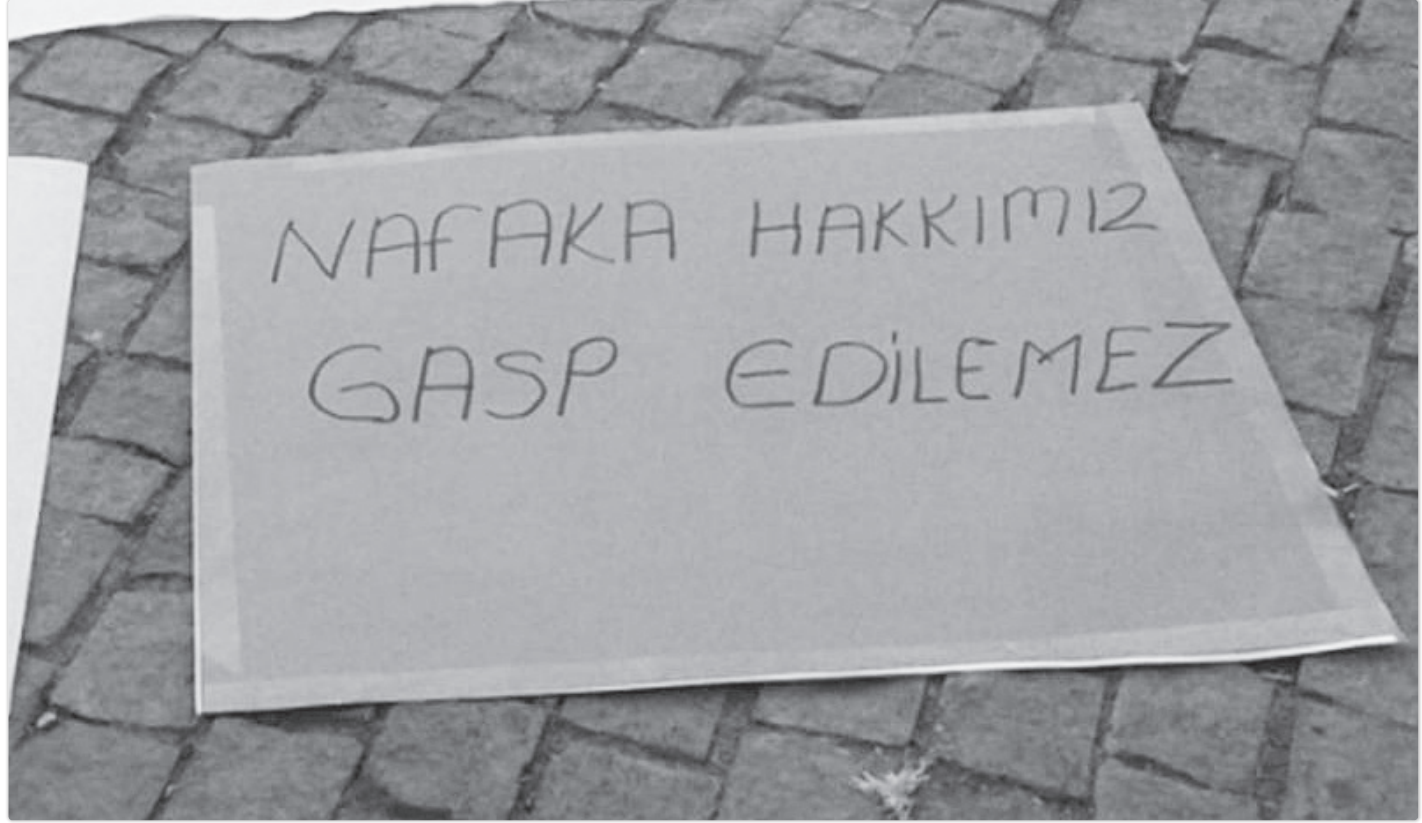 NAFAKA HAKKIMIZ
GASP EDİLEMEZ